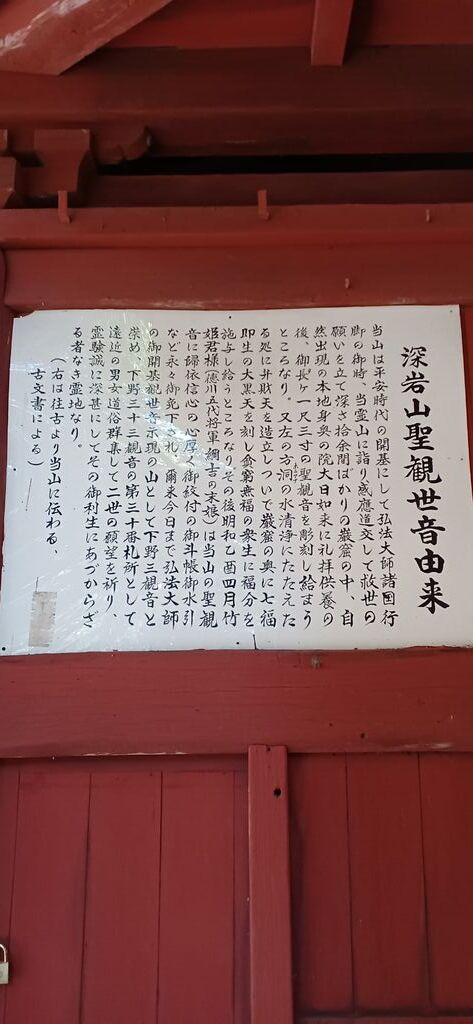 深岩山聖観世音由来
当山は平安時代の開基にして弘法大師諸国行
脚の御時、当霊山に詣り感應道交して救世の
願いを立て深さ拾余間ばかりの巌窟の中、自
然出現の本地身奥の院大日如来に礼拝供養の
後、御長ヶ一尺三寸の聖観音を彫刻し給まう
ところなり。又左の方洞の水清浄にたたえた
る処に弁財天を造立しついで巌窟の奥に七福
即生の大黒天を刻し貧窮無福の衆生に福分を
施与し給うところなりその後明和乙酉四月竹
姫君様(徳川五代将軍綱吉の末娘)は当山の聖観
音に歸依信心の心厚く御紋付の御斗帳御水引
など永々御免下され、爾来今日まで弘法大師
の御開基観世音示現の山として下野三観音と
崇め、下野三十三観音の第三十番札所として
遠近の男女道俗群集して二世の願望を祈り、
霊験誠に深甚にしてその御利生にあづからざ
る者なき霊地なり。
(右は往古より当山に伝わる、
古文書による)